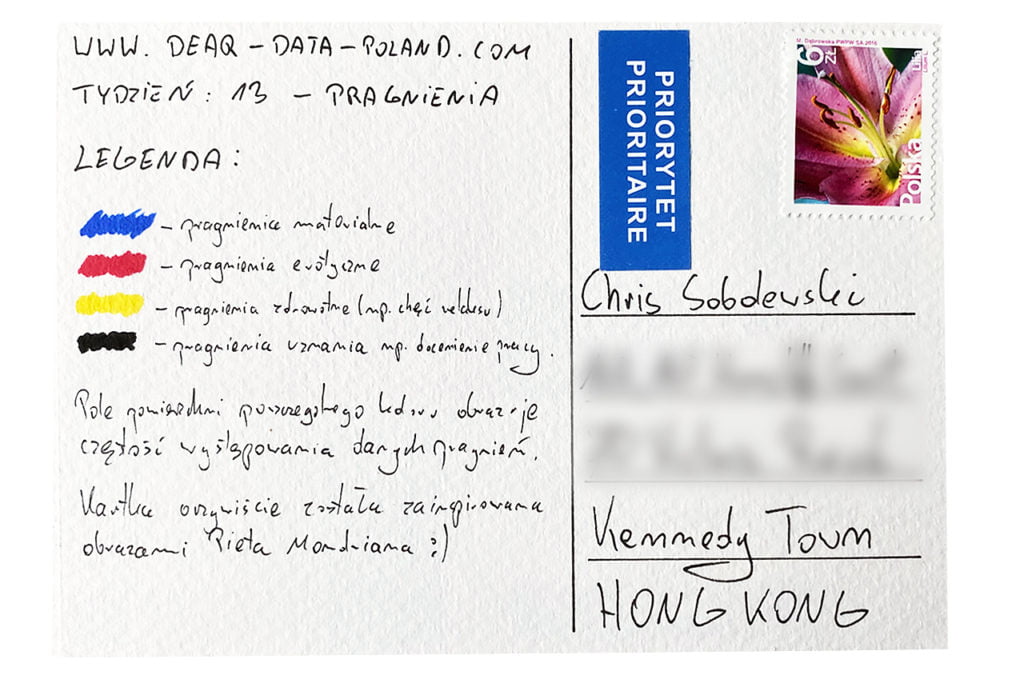 WWW. DEAQ-DATA-POLAND.COM
TYDZIEŃ: 13 - PRAGNIENIA
LEGENDA:
- pragnienia materialne
- pragnienia erotyczne
- pragnienia zdrowotne (np. chęć relaksu)
- pragnienia uznania np. docenienie pracy.
Pole powierzchni poszczególnego koloru obrazuje
częstość występowania danych pragnień.
Kartka oczywiście została zainspirowana
obrazami Pieta Mondriana :)
PRIORYTET
PRIORITAIRE
M. Dąbrowska PWPW SA 2016
6 zł
Polska
Chris Sobolewski
Kennedy Town
HONG KONG